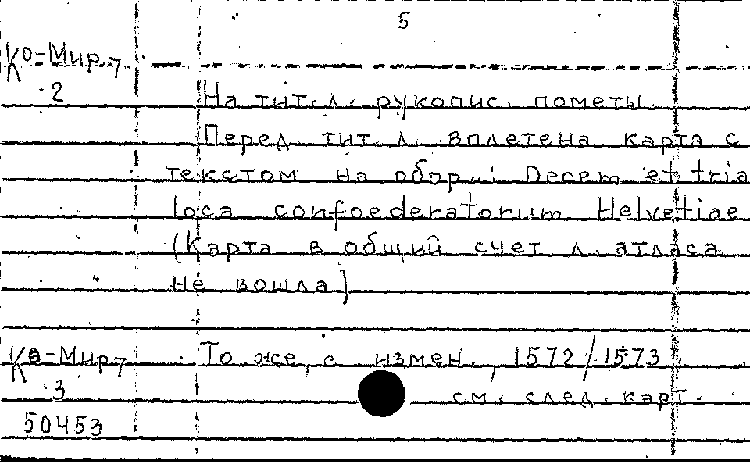 5
Ко-Мир 7
2
На тит. л. рукопис. пометы
Перед тит. л. вплетена карта с
текстом на обор.: Decem et tria
loca confoederatorum Helvetiae
(Карта в общий счет л. атласа
не вошла)
Ко-Мир 7 То же, с измен., 1572/1573
3 см. след. карт.
50453